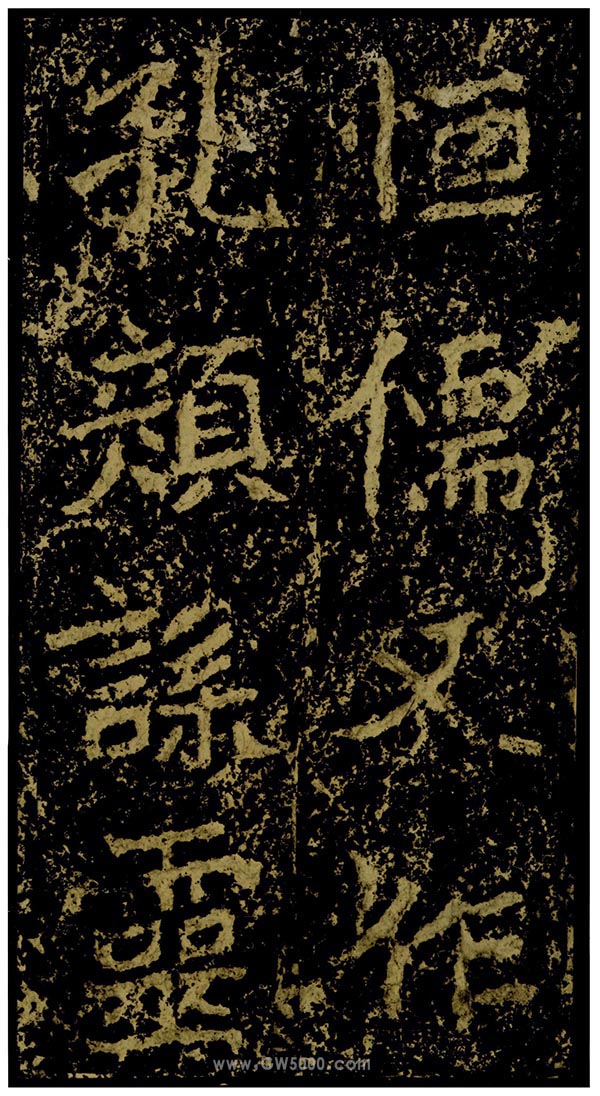 恒儒又作
孔顏誄靈
www.GW5000.com